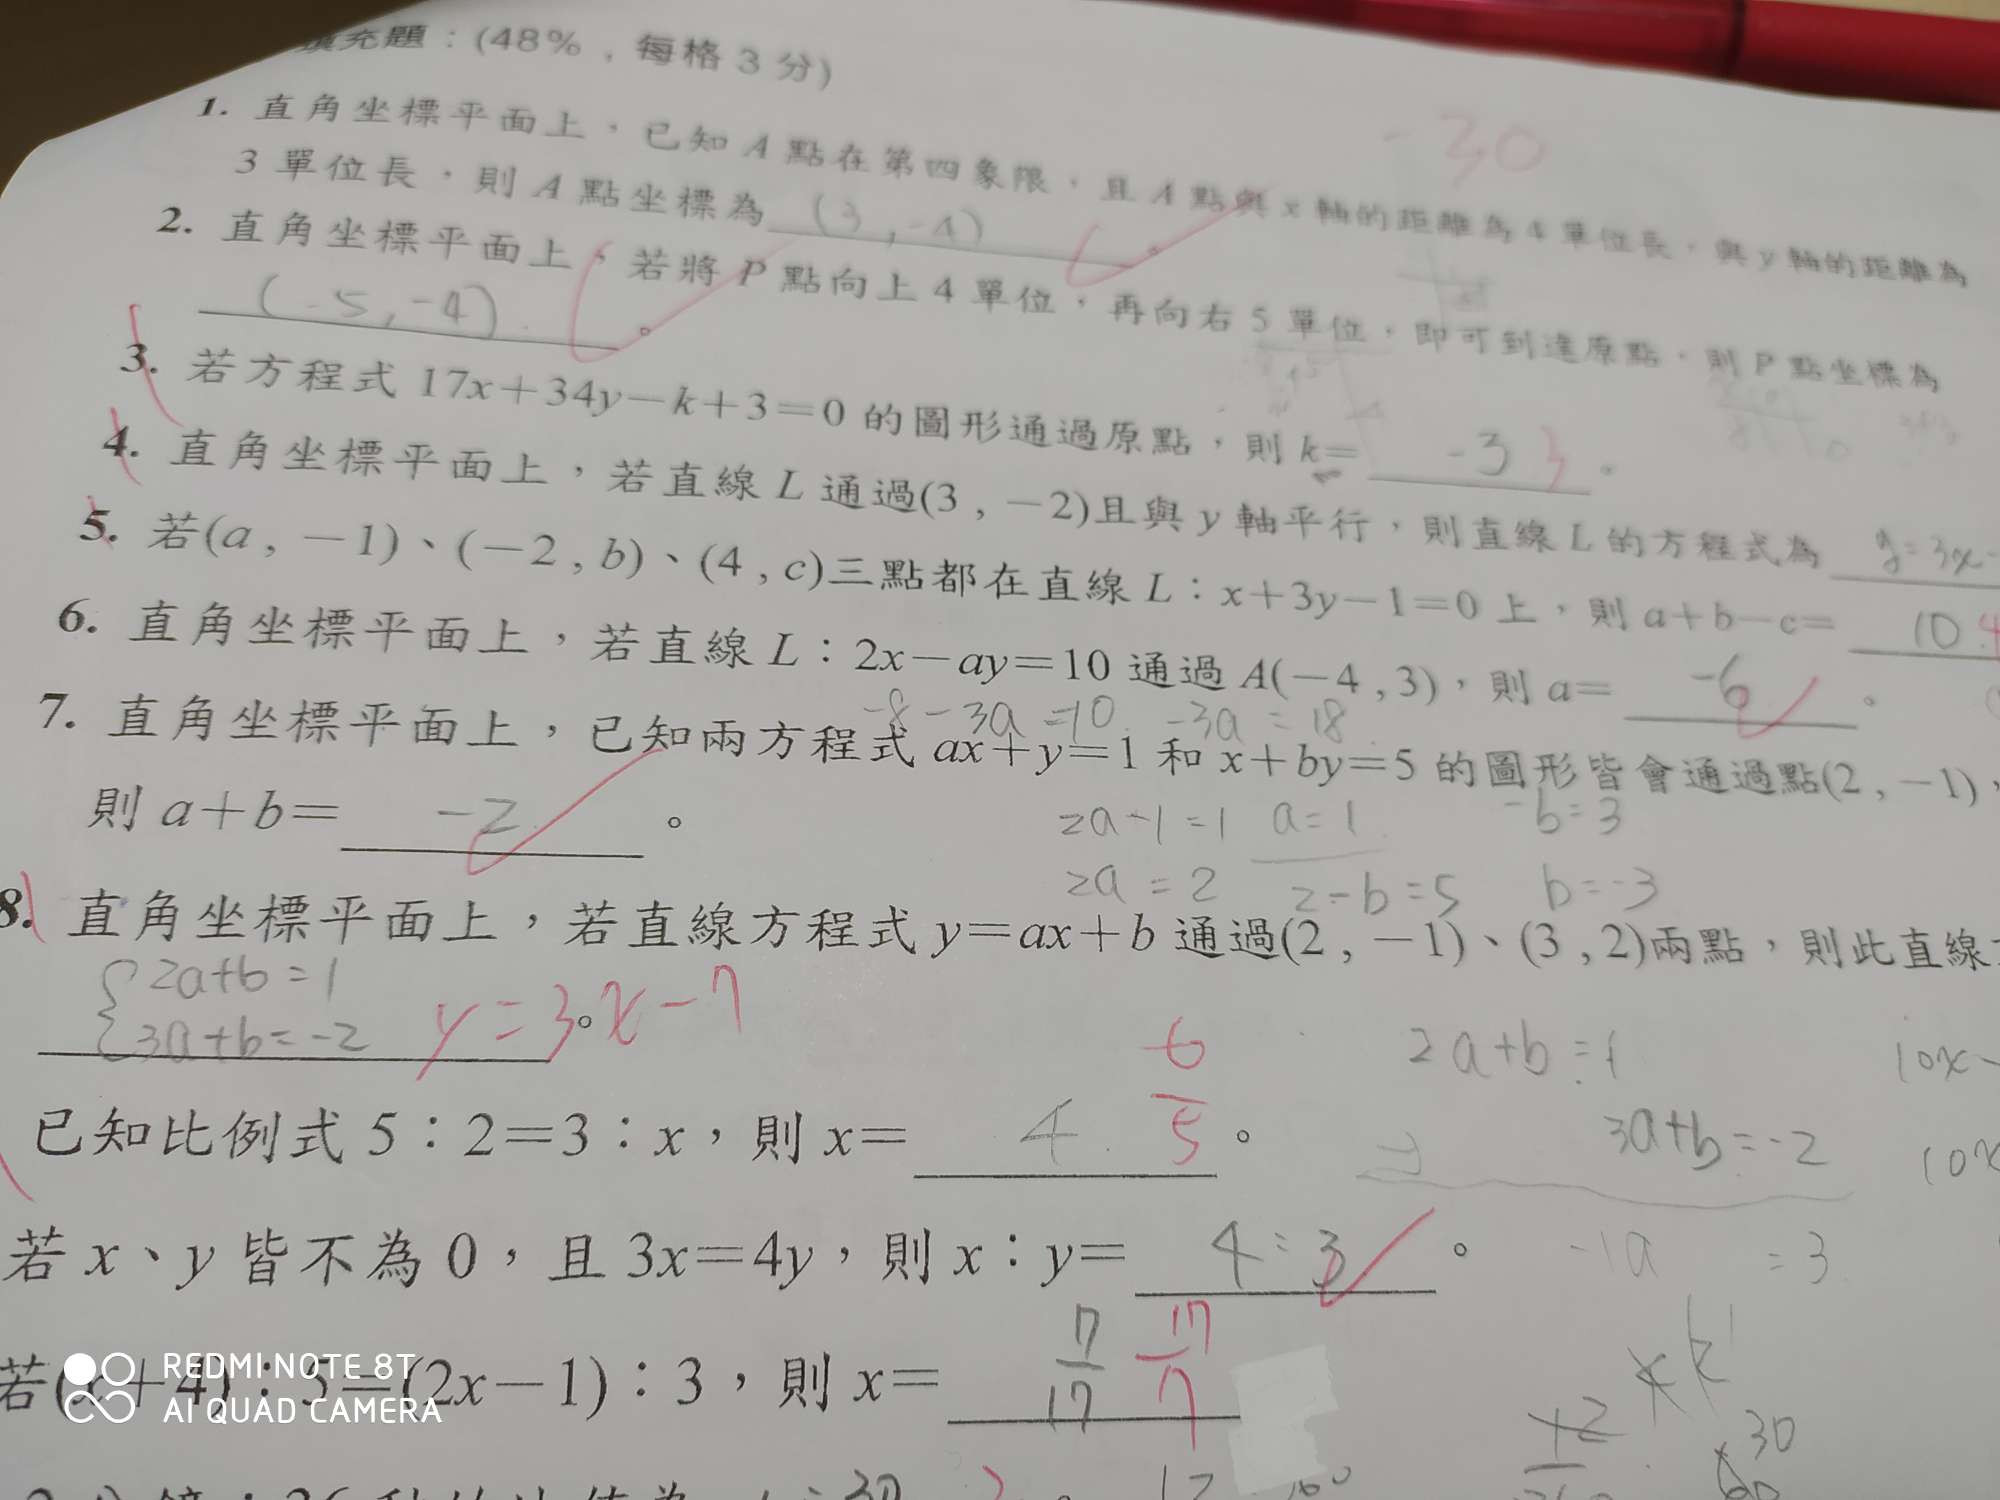 填充題：(48%，每格3分)
-30
1. 直角坐標平面上，已知A點在第四象限，且A點與x軸的距離為4單位長，與y軸的距離為
3單位長，則A點坐標為 (3,-4) 。
2. 直角坐標平面上，若將P點向上4單位，再向右5單位，即可到達原點，則P點坐標為
(-5,-4) 。
3. 若方程式17x+34y-k+3=0的圖形通過原點，則k= -3 3 。
4. 直角坐標平面上，若直線L通過(3,-2)且與y軸平行，則直線L的方程式為 y=3x-
5. 若(a,-1)、(-2,b)、(4,c)三點都在直線L：x+3y-1=0上，則a+b-c= 10
6. 直角坐標平面上，若直線L：2x-ay=10通過A(-4,3)，則a= -6 。
-8-3a=10 -3a=18
7. 直角坐標平面上，已知兩方程式ax+y=1和x+by=5的圖形皆會通過點(2,-1)，
則a+b= -2 。
2a-1=1 a=1 -b=3
2a=2 2-b=5 b=-3
8. 直角坐標平面上，若直線方程式y=ax+b通過(2,-1)、(3,2)兩點，則此直線
2a+b=1
3a+b=-2 y=3x-7 。
2a+b=1 10x-
3a+b=-2 10x
已知比例式5：2=3：x，則x= 4 6/5 。
若x、y皆不為0，且3x=4y，則x：y= 4:3 。
-1a =3
若(x+4)：5=(2x-1)：3，則x= 7/17 17/7
REDMI NOTE 8T
AI QUAD CAMERA
30